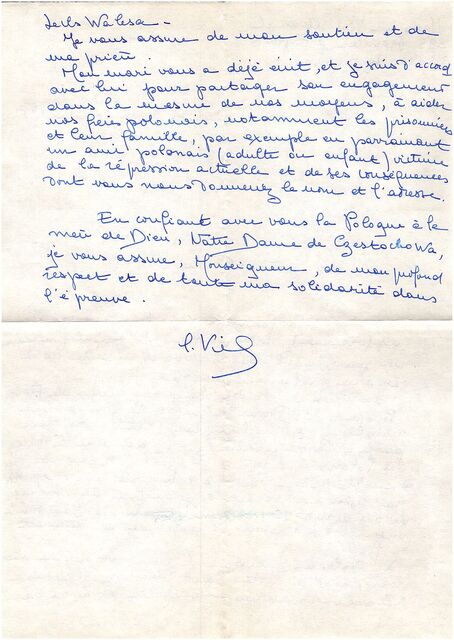 Walesa -
Je vous assure de mon soutien et de
ma prière.
Mon mari vous a déjà écrit, et je suis d'accord
avec lui pour partager son engagement
dans la mesure de nos moyens, à aider
nos frères polonais, notamment les prisonniers
et leur famille, par exemple en parrainant
un ami polonais (adulte ou enfant) victime
de la répression actuelle et de ses conséquences
dont vous nous donnerez le nom et l'adresse.
En confiant avec vous la Pologne à la
mère de Dieu, Notre Dame de Czestochowa,
je vous assure, Monseigneur, de mon profond
respect et de toute ma solidarité dans
l'épreuve.